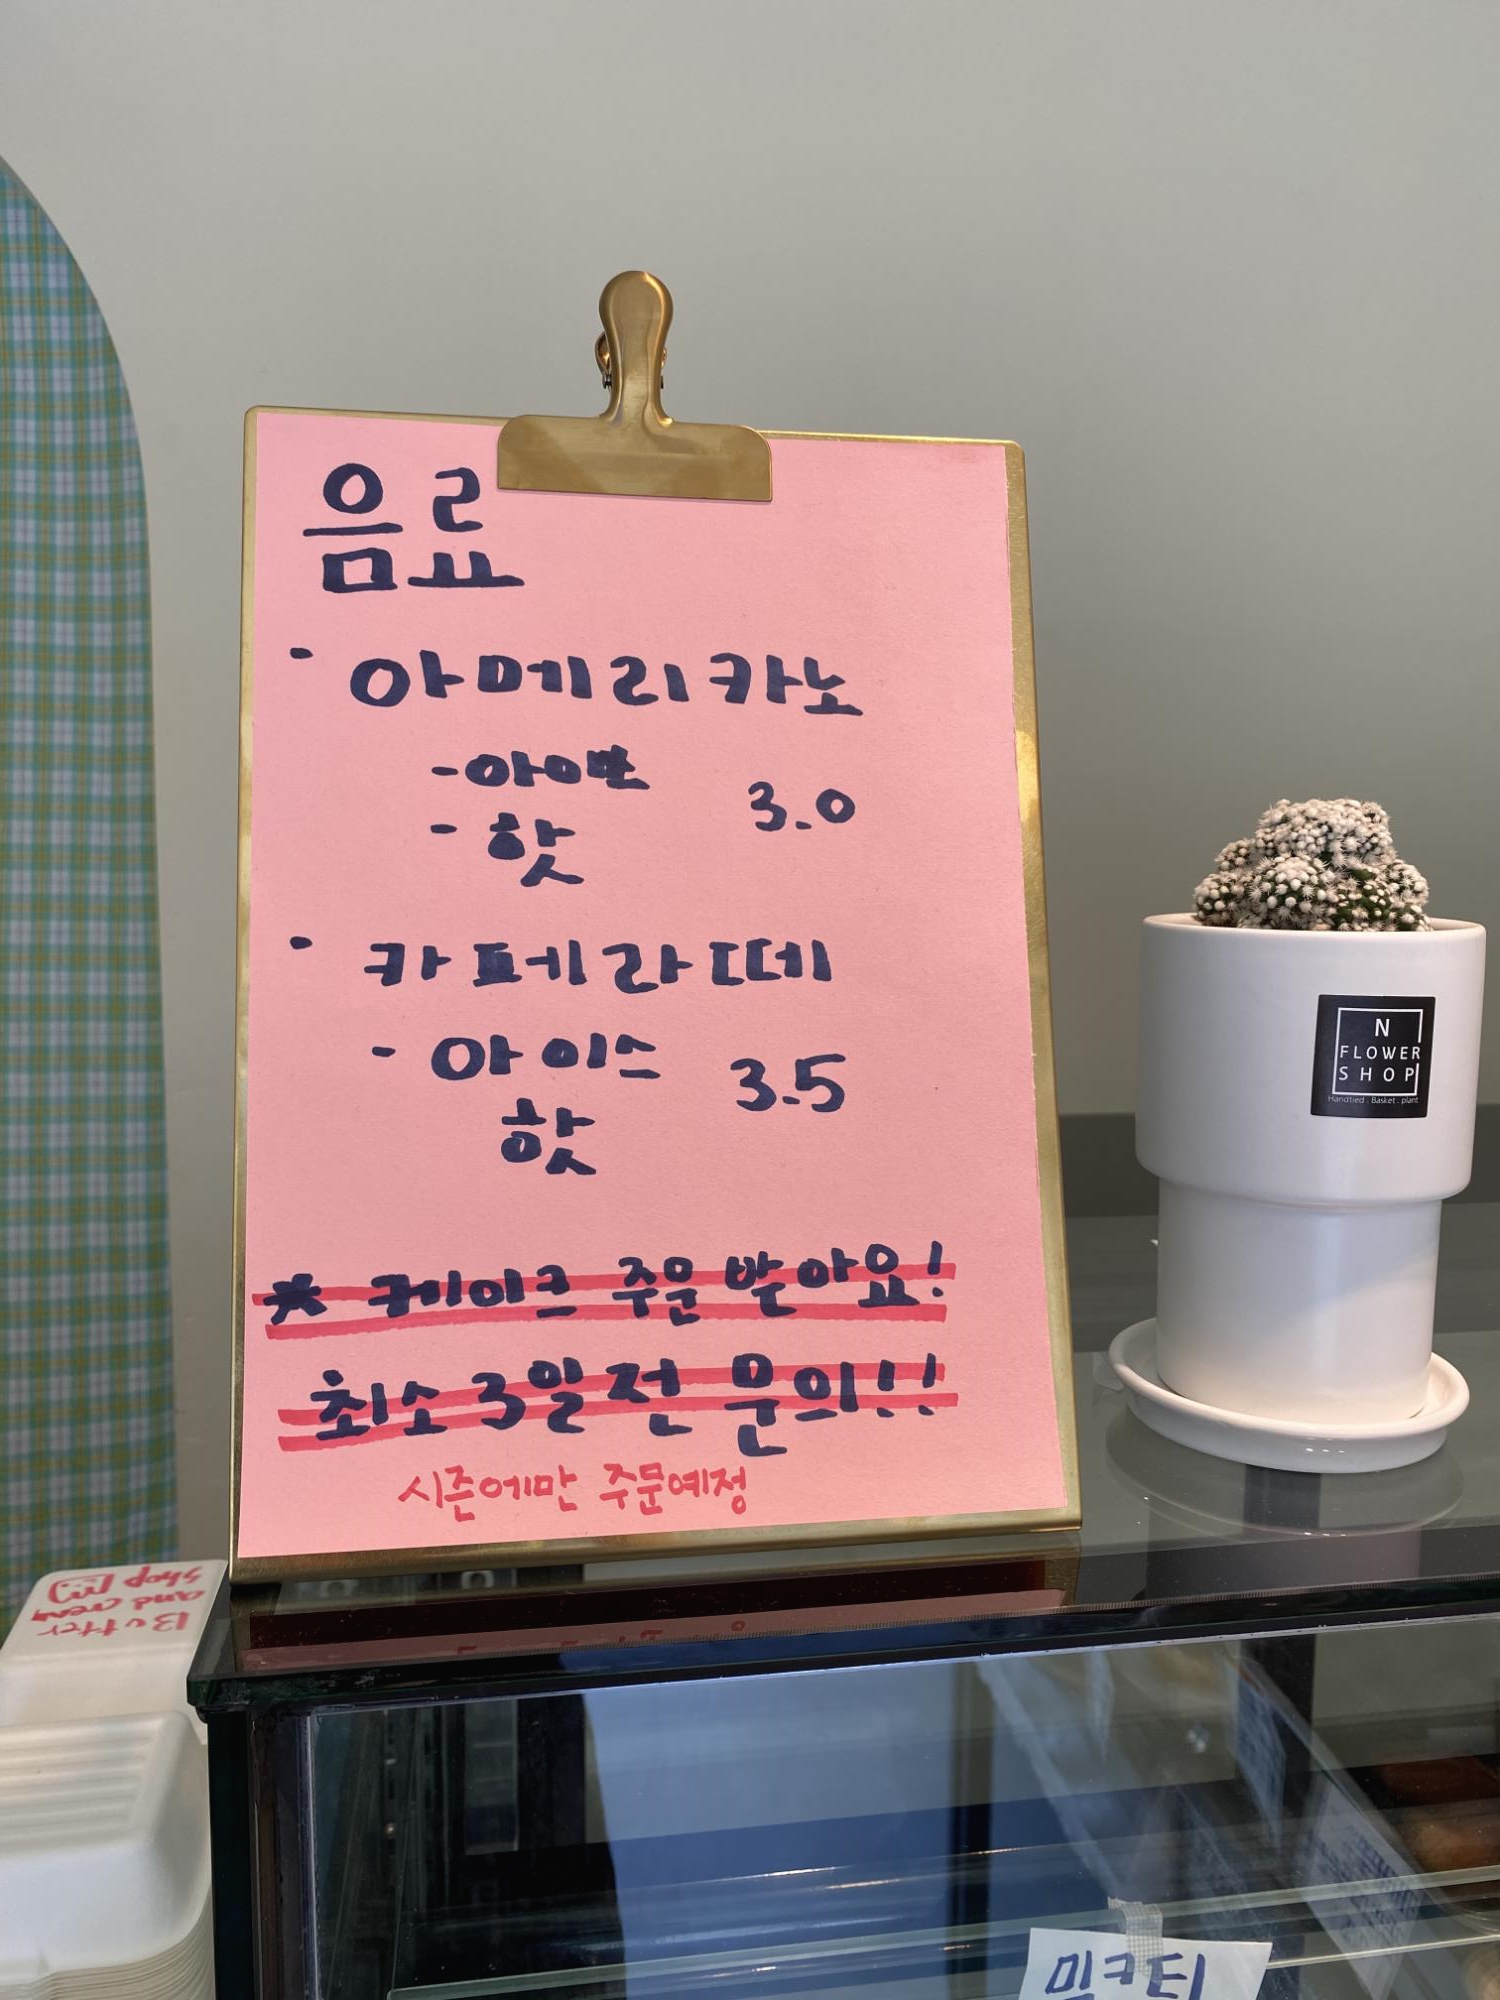 음료
· 아메리카노
-아이스
- 핫
3.0
· 카페라떼
- 아이스
핫
3.5
* 케이크 주문 받아요!
최소 3일 전 문의!!
시즌에만 주문예정
N
FLOWER
SHOP
Handtied . Basket . plant
Butter
and cream
shop
밀크티